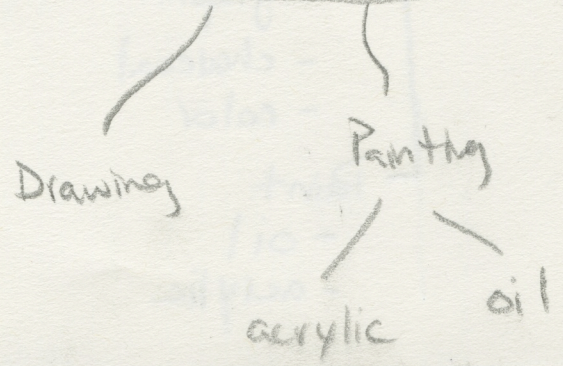 Drawing
Painting
acrylic
oil